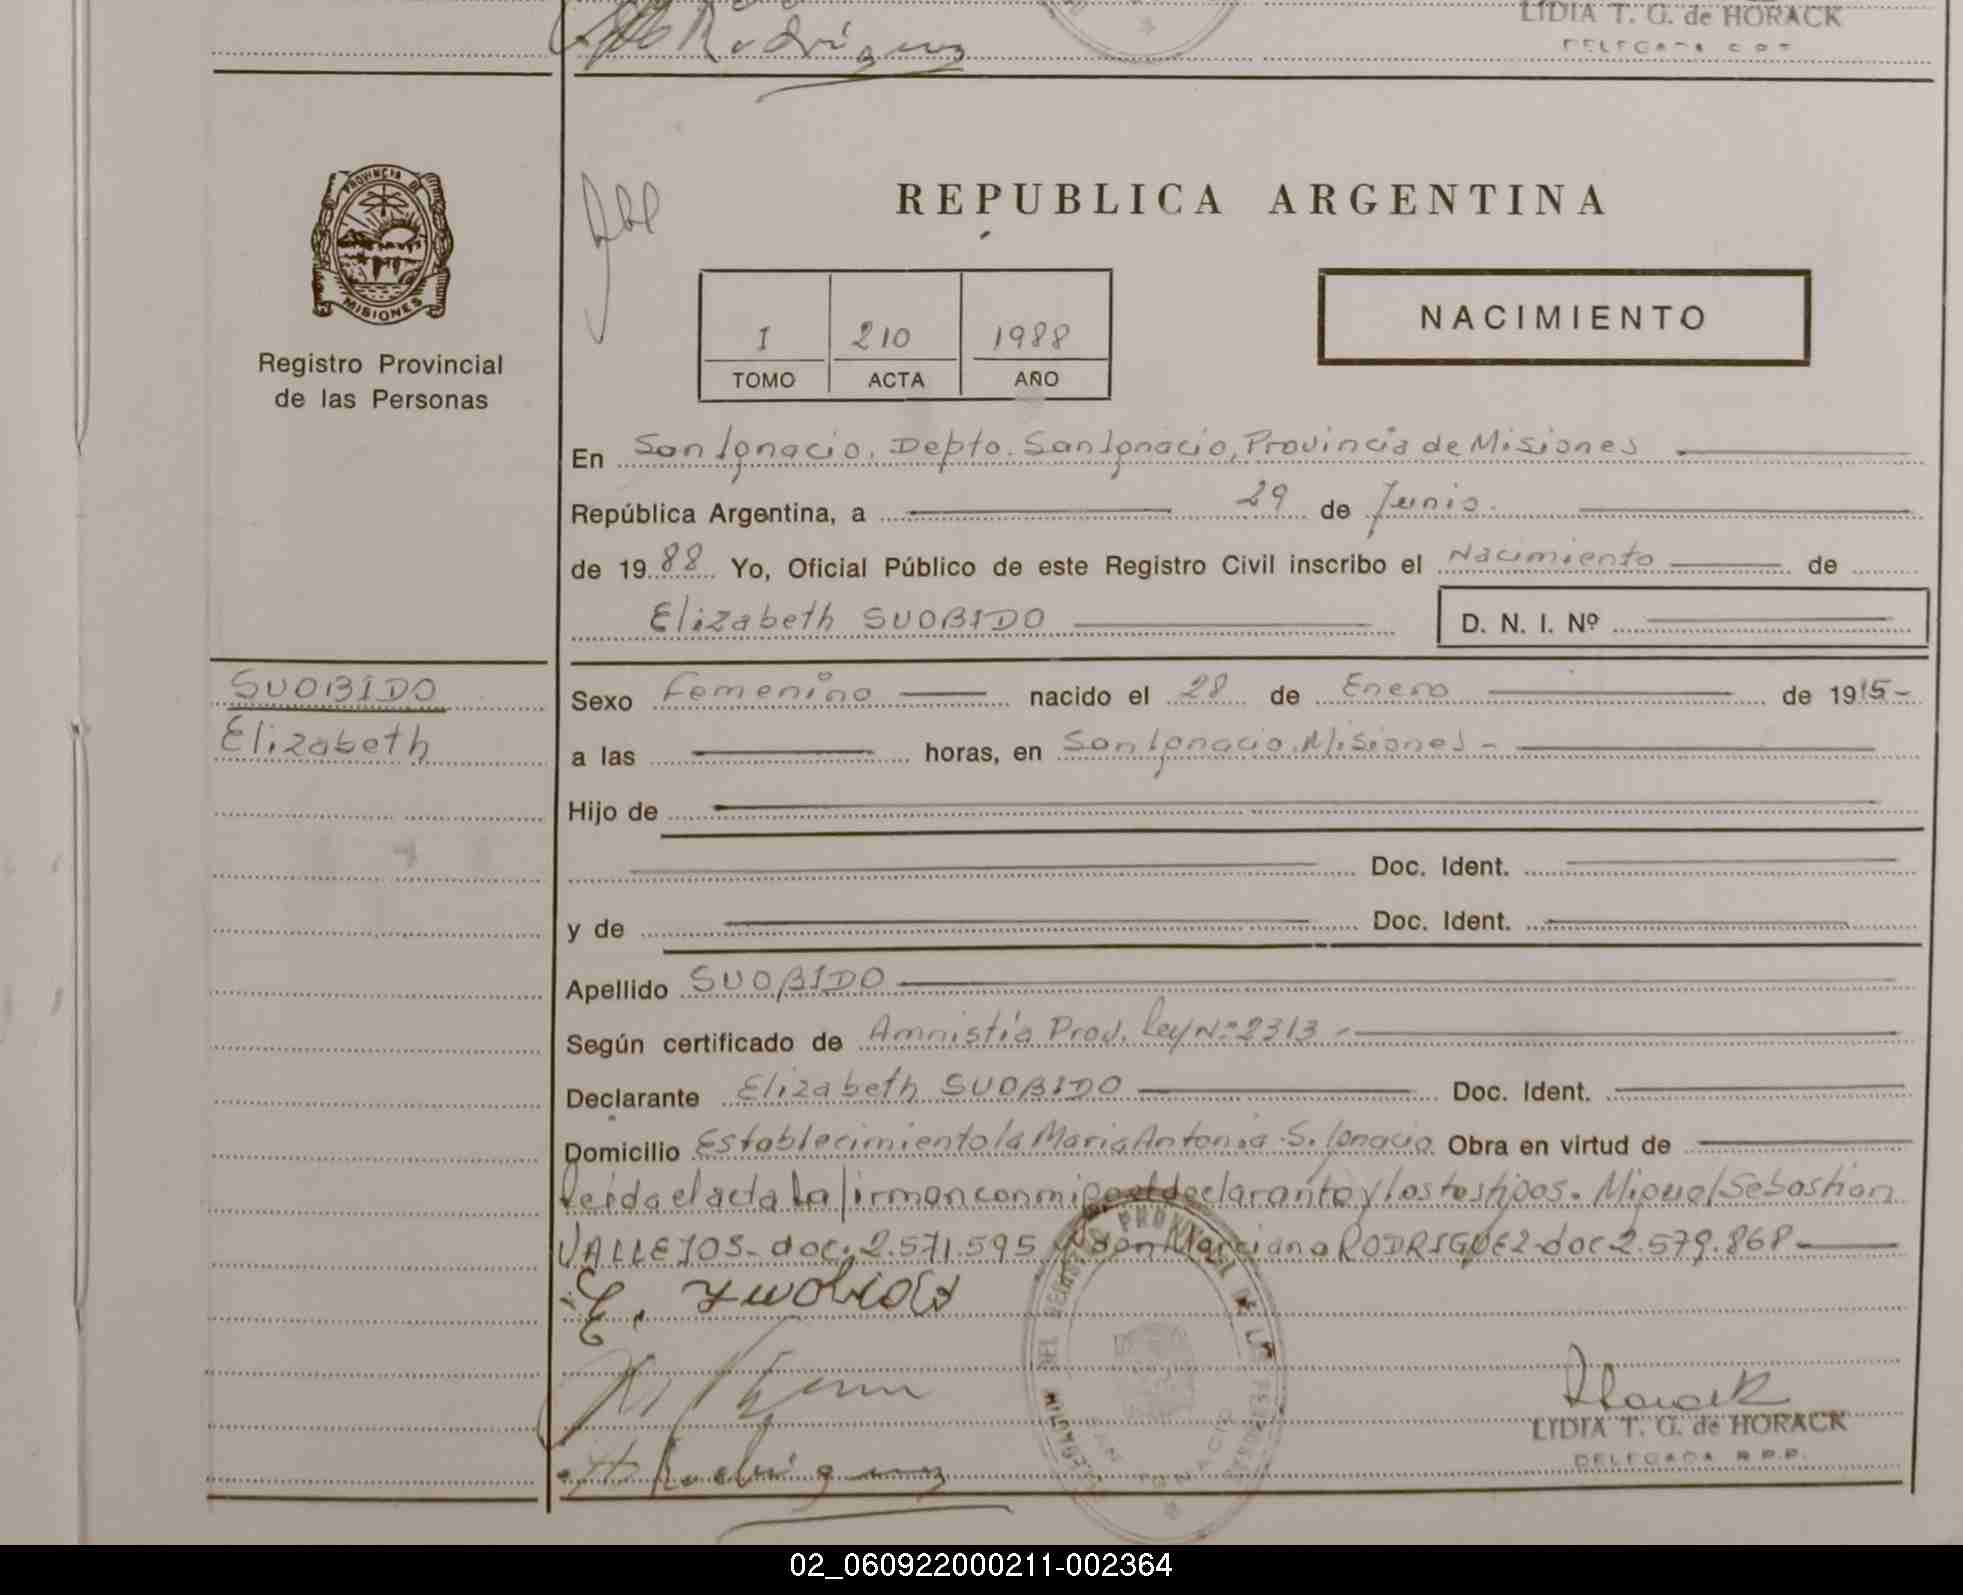 Rodríguez
LIDIA T. G. de HORACK
DELEGADA
PROVINCIA DE
MISIONES
Registro Provincial
de las Personas
REPUBLICA ARGENTINA
I 210 1988
TOMO ACTA AÑO
NACIMIENTO
En San Ignacio, Depto. San Ignacio, Provincia de Misiones
República Argentina, a 29 de Junio.
de 1988 Yo, Oficial Público de este Registro Civil inscribo el Nacimiento de
Elizabeth SUOBIDO D. N. I. Nº
SUOBIDO
Elizabeth
Sexo Femenino nacido el 28 de Enero de 1915-
a las horas, en San Ignacio, Misiones-
Hijo de
Doc. Ident.
y de Doc. Ident.
Apellido SUOBIDO
Según certificado de Amnistía Prov. Ley Nº 2313-
Declarante Elizabeth SUOBIDO Doc. Ident.
Domicilio Establecimiento la Maria Antonia. S. Ignacio Obra en virtud de
Leida el acta la firman conmigo el declarante y los testigos. Miguel Sebastian
VALLEJOS- doc. 2.571.595 y don Marciano RODRIGUEZ-doc 2.579.868-
E.
DEL REGISTRO PROVINCIAL DE LAS PERSONAS
SAN IGNACIO
Horack
LIDIA T. G. de HORACK
DELEGADA R.P.P.
Rodríguez
02_060922000211-002364